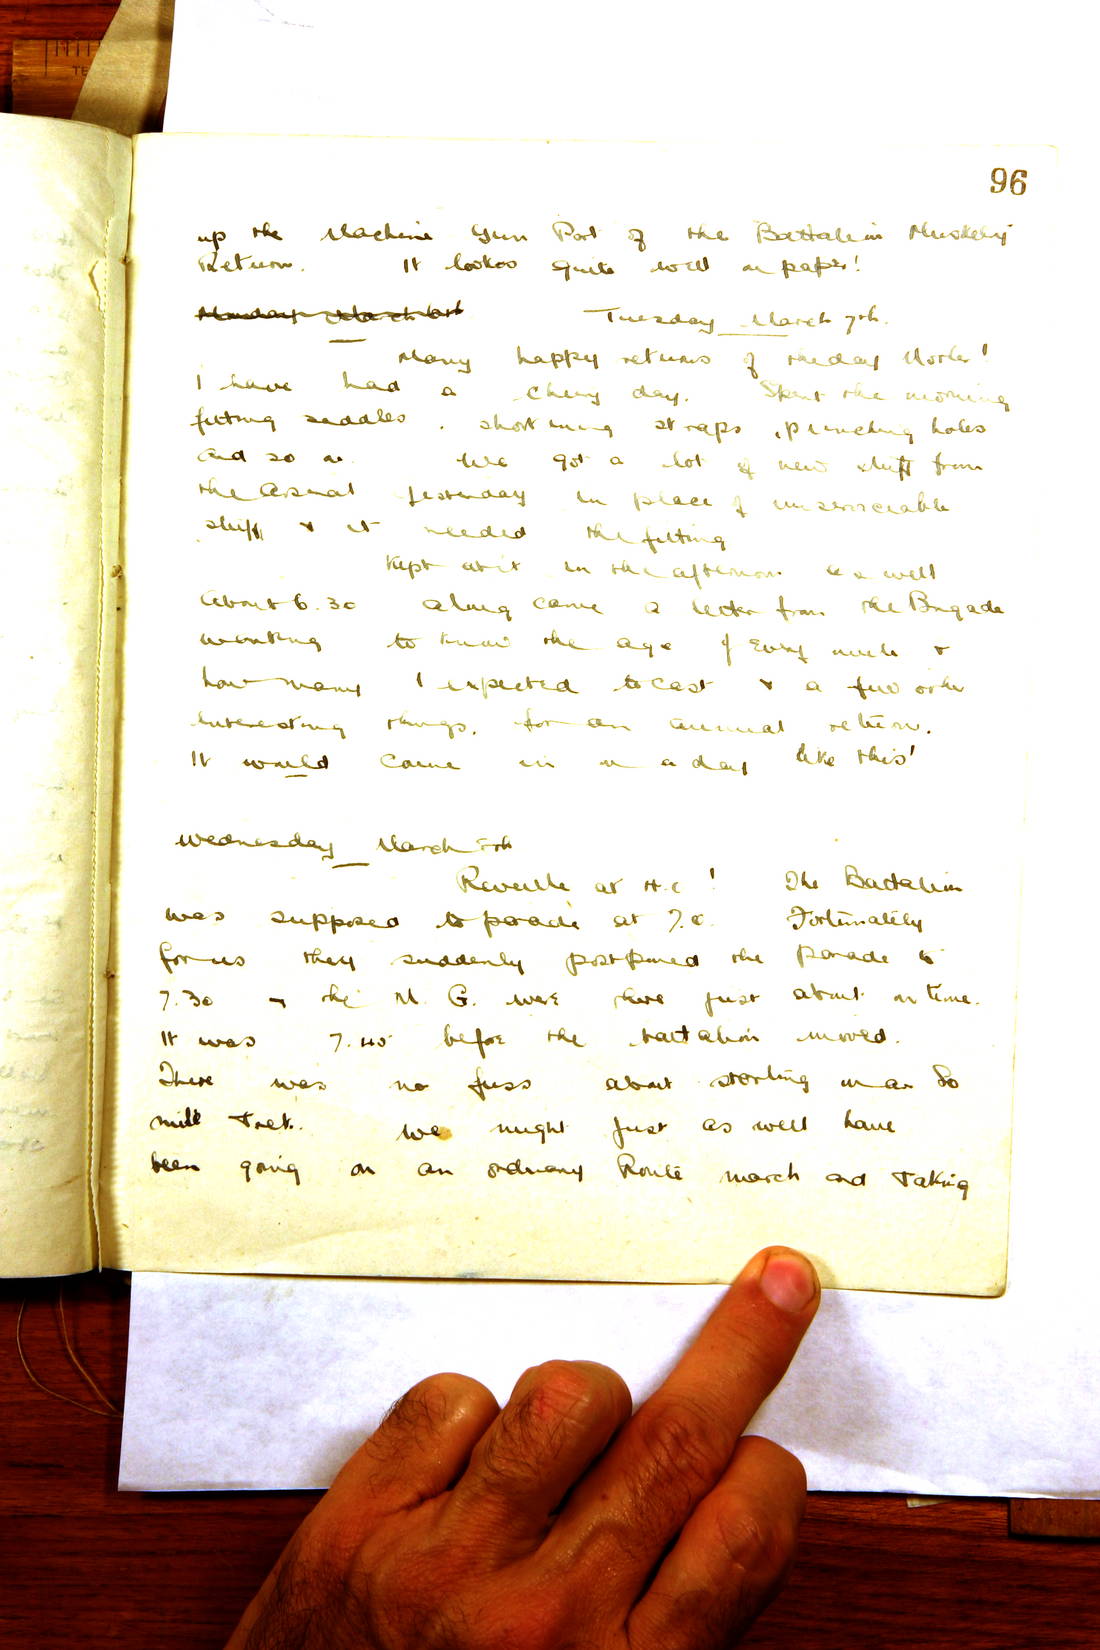 96
up the Machine Gun Part of the Battalion Musketry
Return. It lookes quite well on paper!
Monday March 6th Tuesday March 7th.
Many happy returns of the day Mother!
I have had a cheery day. Spent the morning
fitting saddles, shortening straps, punching holes
and so on. We got a lot of new stuff from
the Arsenal yesterday in place of unserviceable
stuff & it needed the fitting
Kept at it in the afternoon as well
About 6.30 along came a letter from the Brigade
wanting to know the age of every mule &
how many I expected to cast & a few other
interesting things, for an annual return.
It would come in on a day like this!
Wednesday March 8th
Reveille at 4.0! The Battalion
was supposed to parade at 7.0. Fortunately
for us they suddenly postponed the parade to
7.30 & the M. G. were there just about on time.
It was 7.45 before the battalion moved.
There was no fuss about starting on an 80
mile Trek. We might just as well have
been going on an ordinary Route march and Taking